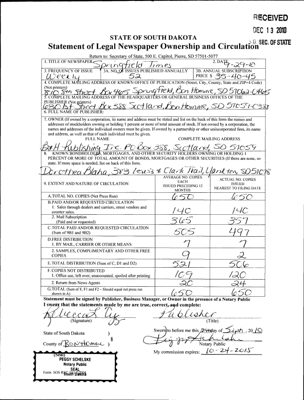 RECEIVED
DEC 13 2010
S.D. SEC. OF STATE
STATE OF SOUTH DAKOTA
Statement of Legal Newspaper Ownership and Circulation
Return to: Secretary of State, 500 E. Capitol, Pierre, SD 57501-5077
1. TITLE OF NEWSPAPER
Springfield Times
2. DATE
9-29-10
3. FREQUENCY OF ISSUE
Weekly
3A. NO. OF ISSUES PUBLISHED ANNUALLY
52
3B. ANNUAL SUBSCRIPTION
PRICE $ 35-40-45
4. COMPLETE MAILING ADDRESS OF KNOWN OFFICE OF PUBLICATION (Street, City, County, State and ZIP+4 Code)
(Not printers)
5. COMPLETE MAILING ADDRESS OF THE HEADQUARTERS OR GENERAL BUSINESS OFFICES OF THE
PUBLISHER (Not printers)
FULL NAME
COMPLETE MAILING ADDRESS
7. OWNER (If owned by a corporation, its name and address must be stated and list on the back of this form the names and
addresses of stockholders owning or holding 1 percent or more of total amount of stock. If not owned by a corporation, the
names and addresses of the individual owners must be given. If owned by a partnership or other unincorporated firm, its name
and address, as well as that of each individual must be given.
FULL NAME
COMPLETE MAILING ADDRESS
B&H Publishing Inc PO box 555 Scotland, SD 57059
8. KNOWN BONDHOLDERS, MORTGAGES, AND OTHER SECURITY HOLDERS OWNING OR HOLDING 1
PERCENT OR MORE OF TOTAL AMOUNT OF BONDS, MORTGAGES OR OTHER SECURITIES (If there are none, so
state. If more space is needed, list on back of this form.
Dorothea Blaha, 3r5 Lewis & Clark Trail, Yankton, SD 57078
A. EXTENT AND NATURE OF CIRCULATION
AVERAGE NO. COPIES
EACH
ISSUES PRECEDING 12
MONTHS
ACTUAL NO. COPIES
ISSUED
NEAREST TO FILING DATE
A. TOTAL NO. COPIES (Net Press Run)
650 650
B. PAID AND/OR REQUESTED CIRCULATION
1. Sales through dealers and carriers, street vendors and
counter sales.
140 140
2. Mail Subscription
(Paid and or requested)
365 357
C. TOTAL PAID AND/OR REQUESTED CIRCULATION
(Sum of 9B1 and 9B2)
505 497
D. FREE DISTRIBUTION
1. BY MAIL, CARRIER OR OTHER MEANS
7 7
2. SAMPLES, COMPLIMENTARY AND OTHER FREE
COPIES
9 2
E. TOTAL DISTRIBUTION (Sum of C, D1 and D2)
521 506
F. COPIES NOT DISTRIBUTED
1. Office use, left over, unaccounted, spoiled after printing
109 120
2. Return from News Agents
20 24
G. TOTAL (Sum of E, F1 and F2 - Should equal net press run
shown in A)
650 650
Statement must be signed by Publisher, Business Manager, or Owner in the presence of a Notary Public
I swear that the statements made by me are true, correct, and complete:
Publisher
(Signature)
(Title)
State of South Dakota
County of Bon Homme
Sworn to before me this
day of Sept. 2010
Notary Public
My commission expires: 10-24-2015
PEGGY SCHELSKE
Notary Public
SEAL
South Dakota